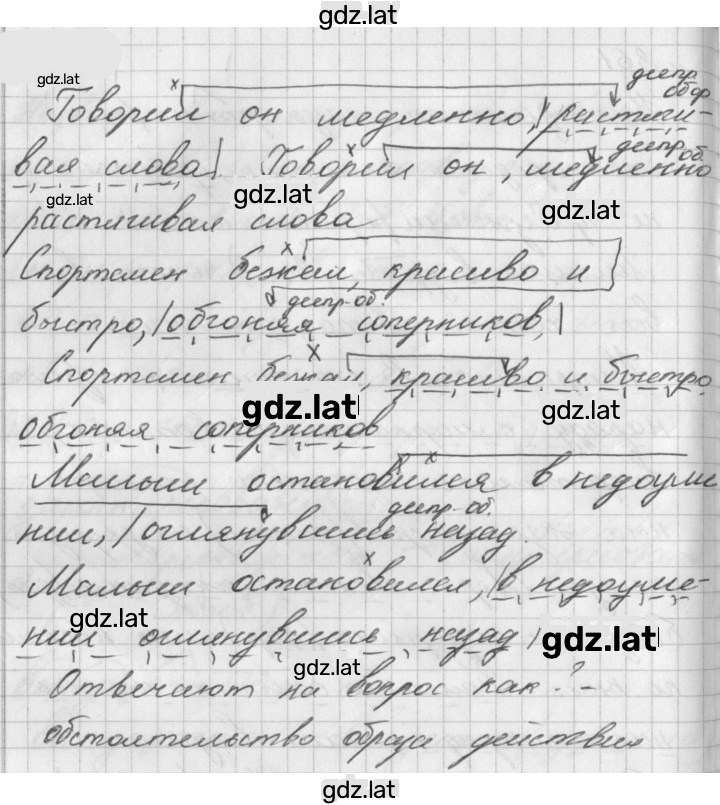 gdz.lat
gdz.lat
деепр.
обор.
Говорил он медленно, | растяги-
деепр. об.
вая слова |. Говорил он, медленно
gdz.lat
gdz.lat
gdz.lat
растягивая слова
Спортсмен бежал, красиво и
дееприч-об.
быстро, | обгоняя соперников, |
Спортсмен бежал, красиво и быстро
gdz.lat
gdz.lat
обгоняя соперников
Малыш остановился в недоуме
деепр-об.
нии, | оглянувшись назад.
Малыш остановился, | в недоуме-
gdz.lat
gdz.lat
нии оглянувшись назад |
gdz.lat
Отвечают на вопрос как? -
обстоятельство образа действия
gdz.lat